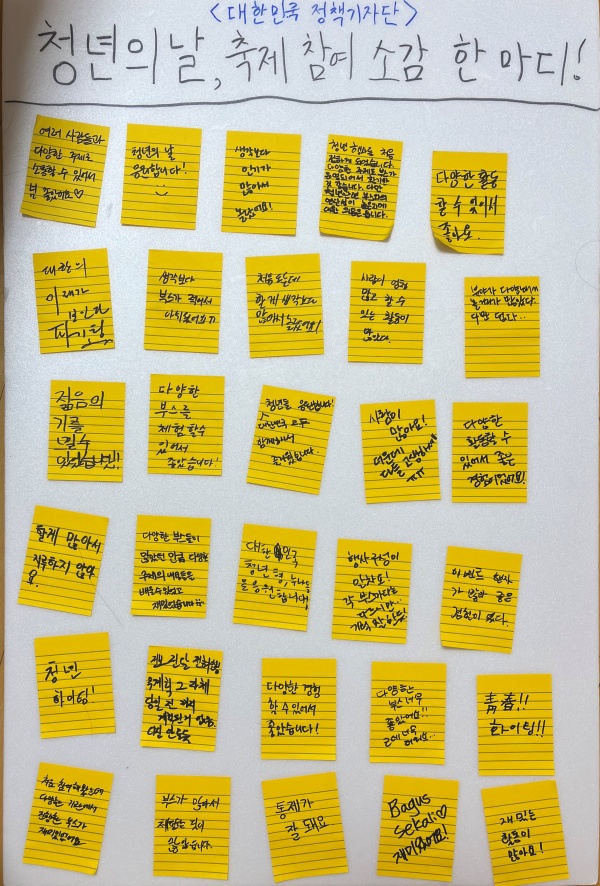 <대한민국 정책기자단>
청년의날, 축제 참여 소감 한 마디!
여러 사람들과
다양한 주제로
소통할 수 있어서
넘 좋았어요♡
청년의 날
응원합니다!
생각보다
인기가
많아서
놀랐어요!
청년 행사를 처음
다양한 주제로 부스가
다양한 활동
할 수 있어서
좋아요.
대한의
미래가
청년과
파이팅
생각보다
부스가 적어서
아쉬웠어요ㅠ
처음 오는데
할게 생각보다
많아서 놀랐어요!
사람이 엄청
많고 할 수
있는 활동이
많았다.
볼거리가 많았다.
다만 덥다..
젊음의
기를
느낄수
있었습니다!!
다양한
부스를
체험할수
있어서
좋았습니다!
청년을 응원합니다!
대한민국 모두
함께해서
즐거웠습니다
사람이
많아요!
더운데
다들 고생하네
ㅠㅠ
다양한
활동할 수
있어서 좋은
경험이었어요!
할게 많아서
지루하지 않았
요.
다양한 부스들이
많았던 만큼 다양한
배울 수 있었고
재밌었습니다
대한민국
청년 형, 누나들
을 응원합니다!
행사 구성이
알차요!
각 부스마다
이벤트 행사
가 많아 좋은
경험이 됐다.
청년
화이팅!
다양한 경험
할 수 있어서
좋았습니다!
다양한
부스 너무
좋았어요!!
근데 너무
더워요..
青春!!
화이팅!!
처음 참여해봤는데
다양한 기관에서
진행한 부스가
재미있었어요
부스가 많아서
체험할 것이
많았습니다.
통제가
잘 돼요
Bagus
sekali♡
재미있어요!
재밌는
활동이
많아요!